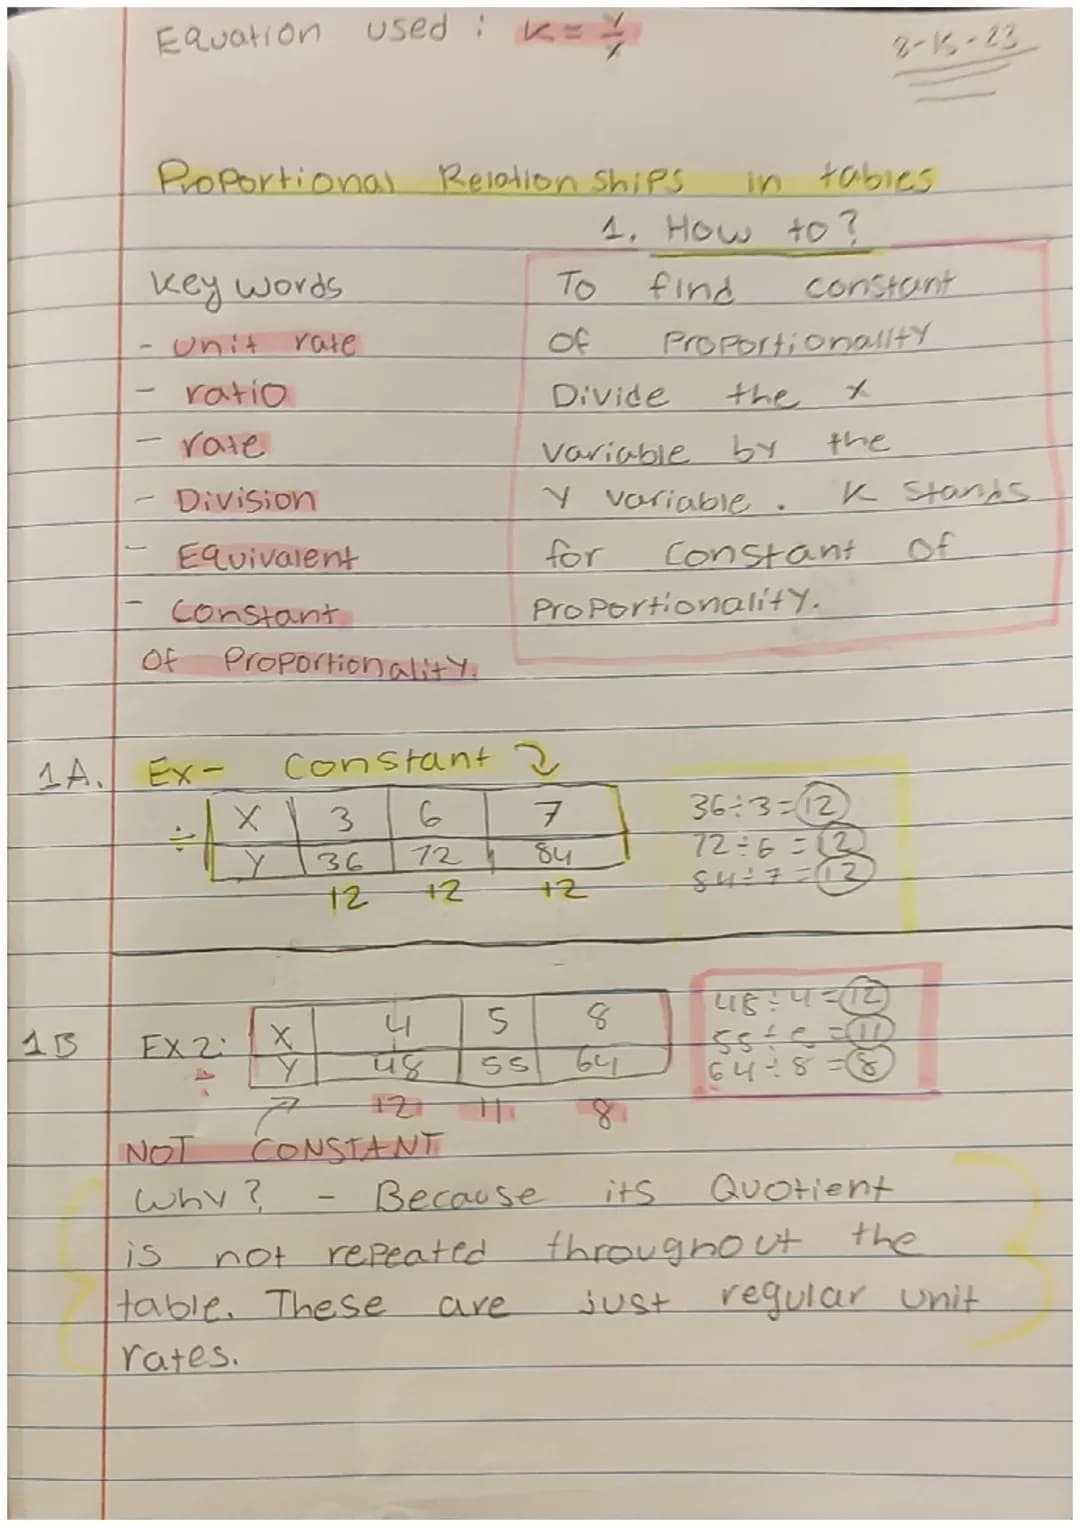 Equation used : K = Y/X
Proportional Relationships in tables
1. How to?
key words
- unit rate
- ratio
- rate
- Division
- Equivalent
- Constant
of Proportionality.
To find constant
of Proportionality
Divide the x
variable by the
Y variable. K stands
for Constant of
Proportionality.
1A. Ex- Constant
÷ X 3 6 7
Y 36 72 84
12 12 12
36÷3=12
72÷6=12
84÷7=12
1B EX 2:
X 4 5 8
÷ Y 48 55 64
12 11 8
48÷4=12
55÷5=11
64÷8=8
NOT CONSTANT
Why? - Because its Quotient
is not repeated throughout the
table. These are just regular unit
rates.